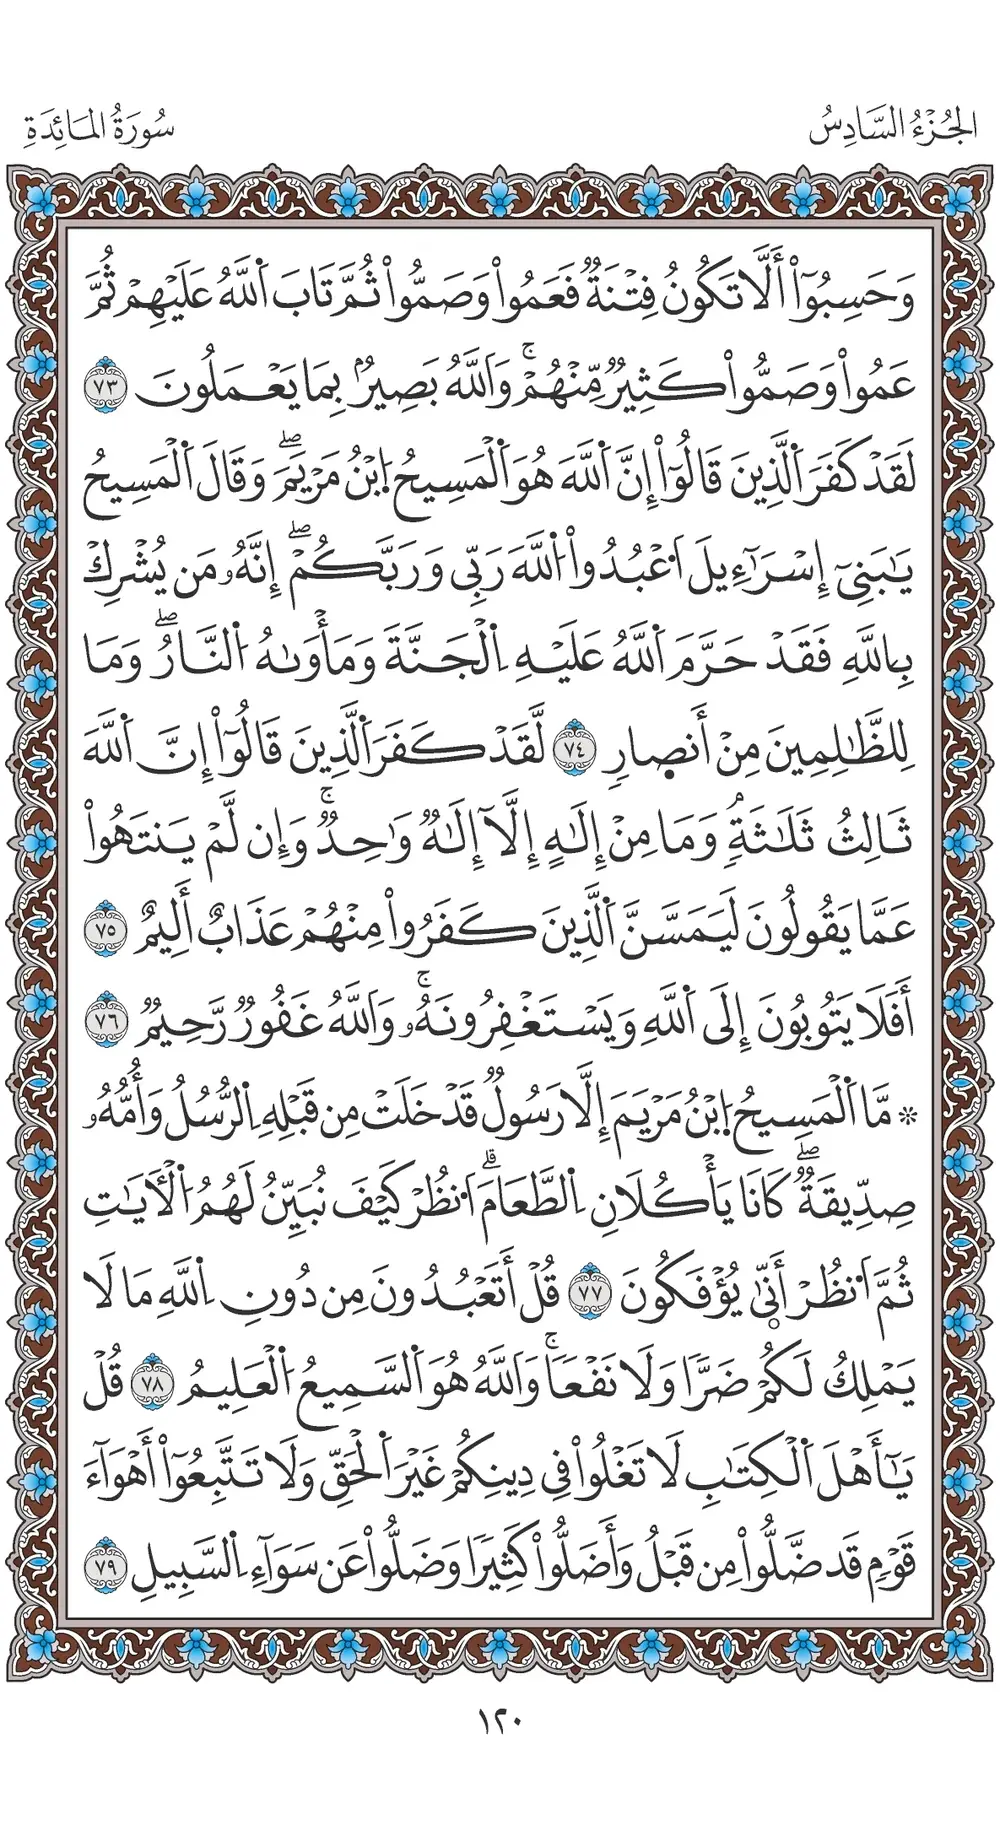 الجُزْءُ السَّادِسُ
سُورَةُ المَائِدَةِ
وَحَسِبُوٓا۟ أَلَّا تَكُونُ فِتْنَةٌ فَعَمُوا۟ وَصَمُّوا۟ ثُمَّ تَابَ اَ۬للَّهُ عَلَيْهِمْ ثُمَّ
عَمُوا۟ وَصَمُّوا۟ كَثِيرٌ مِّنْهُمْۚ وَاَللَّهُ بَصِيرُۢ بِمَا يَعْمَلُونَ ٧٣
لَقَدْ كَفَرَ اَ۬لَّذِينَ قَالُوٓا۟ إِنَّ اَ۬للَّهَ هُوَ اَ۬لْمَسِيحُ اُ۪بْنُ مَرْيَمَۖ وَقَالَ اَ۬لْمَسِيحُ
يَٰبَنِىٓ إِسْرَٰٓءِيلَ اَ۟عْبُدُوا۟ اُ۬للَّهَ رَبِّى وَرَبَّكُمْۖ إِنَّهُۥ مَن يُشْرِكْ
بِاللَّهِ فَقَدْ حَرَّمَ اَ۬للَّهُ عَلَيْهِ اِ۬لْجَنَّةَ وَمَأْوَىٰهُ اُ۬لنَّارُۖ وَمَا
لِلظَّٰلِمِينَ مِنْ أَنصِارٖ ٧٤ لَّقَدْ كَفَرَ اَ۬لَّذِينَ قَالُوٓا۟ إِنَّ اَ۬للَّهَ
ثَالِثُ ثَلَٰثَةٖۘ وَمَا مِنْ إِلَٰهٍ إِلَّآ إِلَٰهٌ وَٰحِدٌۚ وَإِن لَّمْ يَنتَهُوا۟
عَمَّا يَقُولُونَ لَيَمَسَّنَّ اَ۬لَّذِينَ كَفَرُوا۟ مِنْهُمْ عَذَابٌ أَلِيمٌ ٧٥
أَفَلَا يَتُوبُونَ إِلَى اَ۬للَّهِ وَيَسْتَغْفِرُونَهُۥۚ وَاَللَّهُ غَفُورٌ رَّحِيمٌ ٧٦
۞ مَّا اَ۬لْمَسِيحُ اُ۪بْنُ مَرْيَمَ إِلَّا رَسُولٌ قَدْ خَلَتْ مِن قَبْلِهِ اِ۬لرُّسُلُ وَأُمُّهُۥ
صِدِّيقَةٌۖ كَانَا يَأْكُلَانِ اِ۬لطَّعَامَۗ اَ۟نظُرْ كَيْفَ نُبَيِّنُ لَهُمُ اُ۬لْأٓيَٰتِ
ثُمَّ اَ۟نظُرْ أَنّ۪ىٰ يُؤْفَكُونَ ٧٧ قُلْ أَتَعْبُدُونَ مِن دُونِ اِ۬للَّهِ مَا لَا
يَمْلِكُ لَكُمْ ضَرّٗا وَلَا نَفْعٗاۚ وَاَللَّهُ هُوَ اَ۬لسَّمِيعُ اُ۬لْعَلِيمُ ٧٨ قُلْ
يَٰٓأَهْلَ اَ۬لْكِتَٰبِ لَا تَغْلُوا۟ فِى دِينِكُمْ غَيْرَ اَ۬لْحَقِّ وَلَا تَتَّبِعُوٓا۟ أَهْوَآءَ
قَوْمٖ قَد ضَّلُّوا۟ مِن قَبْلُ وَأَضَلُّوا۟ كَثِيرٗا وَضَلُّوا۟ عَن سَوَآءِ اِ۬لسَّبِيلِ ٧٩
١٢٠